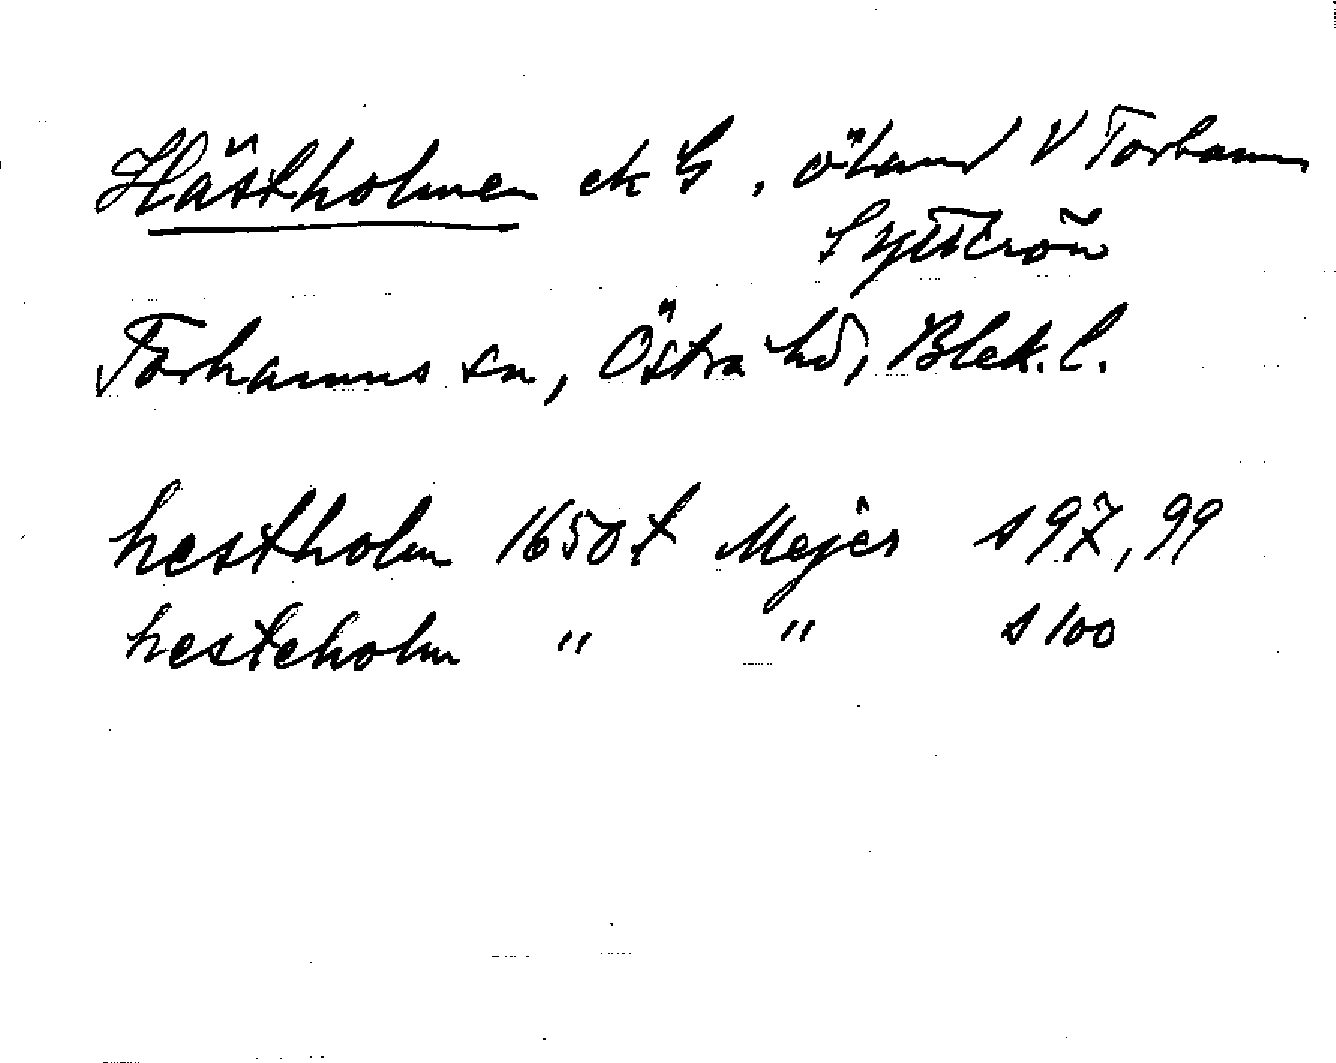 Hästholmen ek G, öland V Torhamn
Torhamns sn, Östra hd, Blek. l.
hestholm 1650 t Mejer s 97, 99
hesteholm " " s 100